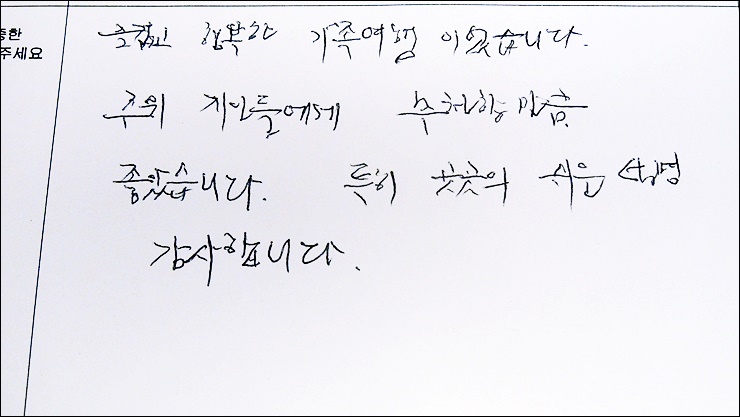 즐겁고 행복한 가족여행 이었습니다.
중한
주세요
주위 지인들에게 추천할 만큼
좋았습니다. 특히 곳곳의 쉬운 설명
감사합니다.